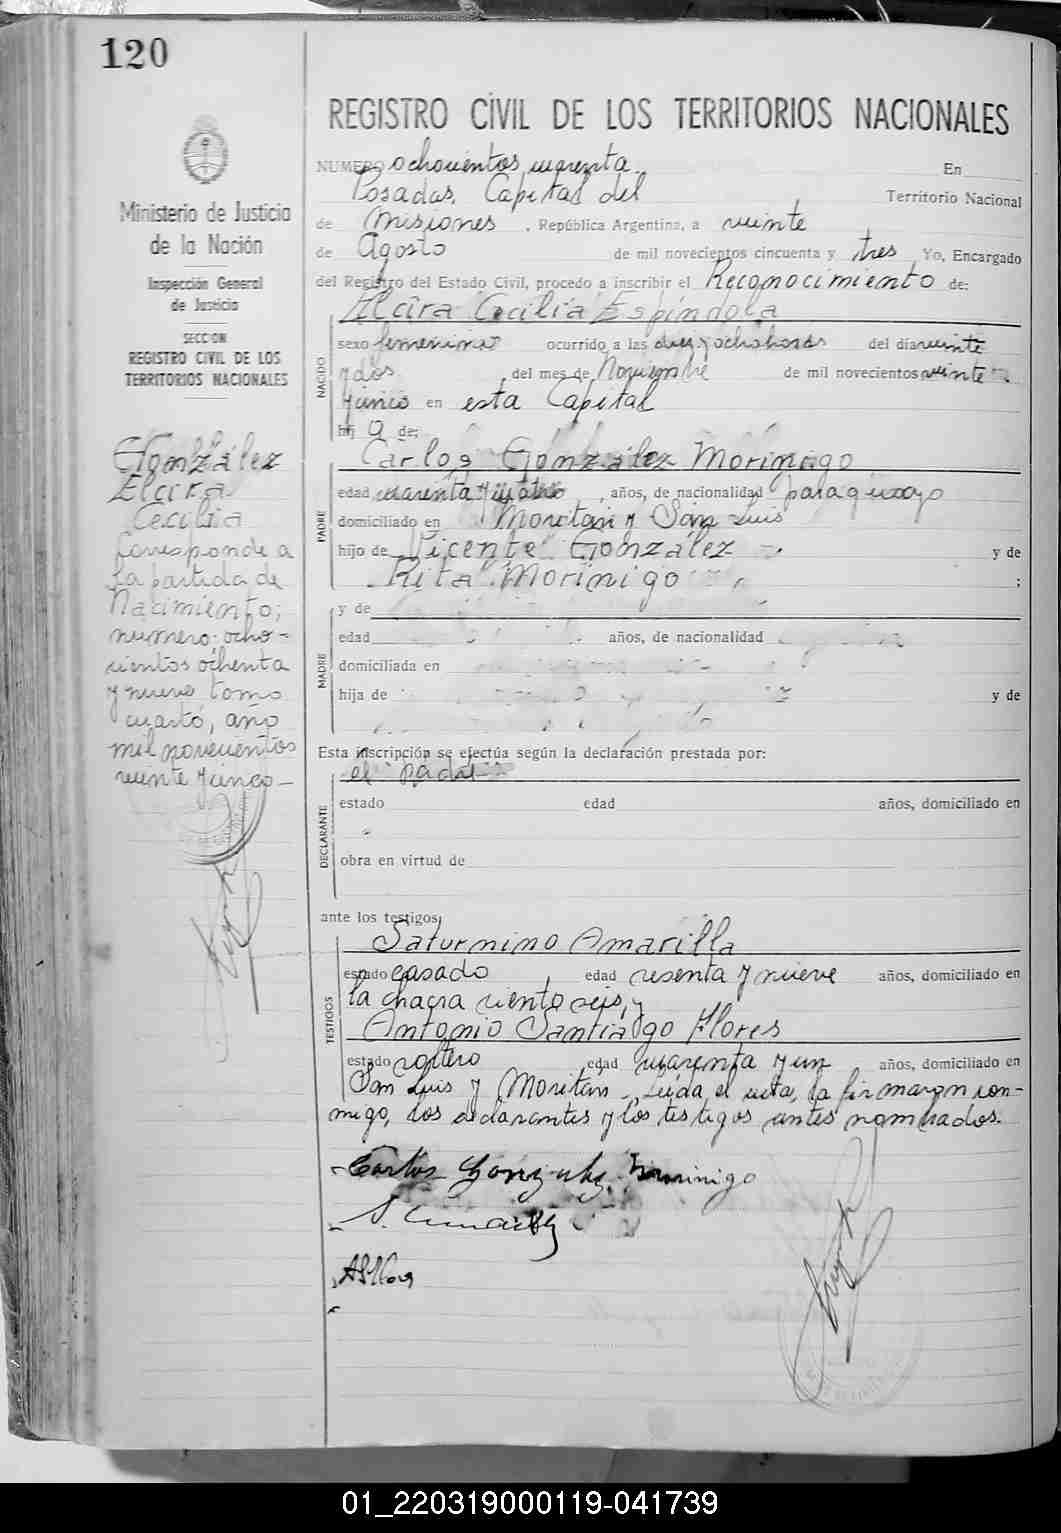 120
REGISTRO CIVIL DE LOS TERRITORIOS NACIONALES
NUMERO ochocientos cuarenta En
Posadas, Capital del Territorio Nacional
de Misiones, República Argentina, a veinte
de Agosto de mil novecientos cincuenta y tres Yo, Encargado
del Registro del Estado Civil, procedo a inscribir el Reconocimiento de:
Elcira Cecilia Espíndola
NACIDO
sexo femenino ocurrido a las diez y ocho horas del día veinte
y dos, del mes de Noviembre de mil novecientos veinte
y cinco en esta Capital
hij a de:
PADRE
Carlos González Morinigo
edad cuarenta y cuatro, años, de nacionalidad paraguayo
domiciliado en Moritán y San Luis
hijo de Vicente González y de
Rita Morinigo ;
MADRE
y de
edad años, de nacionalidad
domiciliada en
hija de y de
Esta inscripción se efectúa según la declaración prestada por:
DECLARANTE
el padre
estado edad años, domiciliado en
obra en virtud de
ante los testigos
TESTIGOS
Saturnino Amarilla
estado casado, edad sesenta y nueve años, domiciliado en
la chacra ciento seis, y
Antonio Santiago Flores
estado soltero edad cuarenta y un años, domiciliado en
San Luis y Moritán. Leída el acta, la firmaron con-
migo, los declarantes y los testigos antes nombrados.
Carlos González Morinigo
S. Amarilla
ASFlores
Ministerio de Justicia
de la Nación
Inspección General
de Justicia
SECCION
REGISTRO CIVIL DE LOS
TERRITORIOS NACIONALES
González
Elcira
Cecilia
Corresponde a
la partida de
Nacimiento;
número: ocho-
cientos ochenta
y nueve tomo
cuarto, año
mil novecientos
veinte y cinco-
01_220319000119-041739